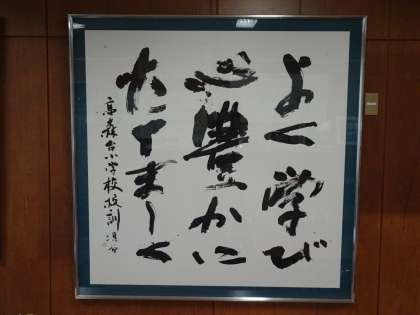 よく学び
心豊かに
たくましく
高森台小学校校訓